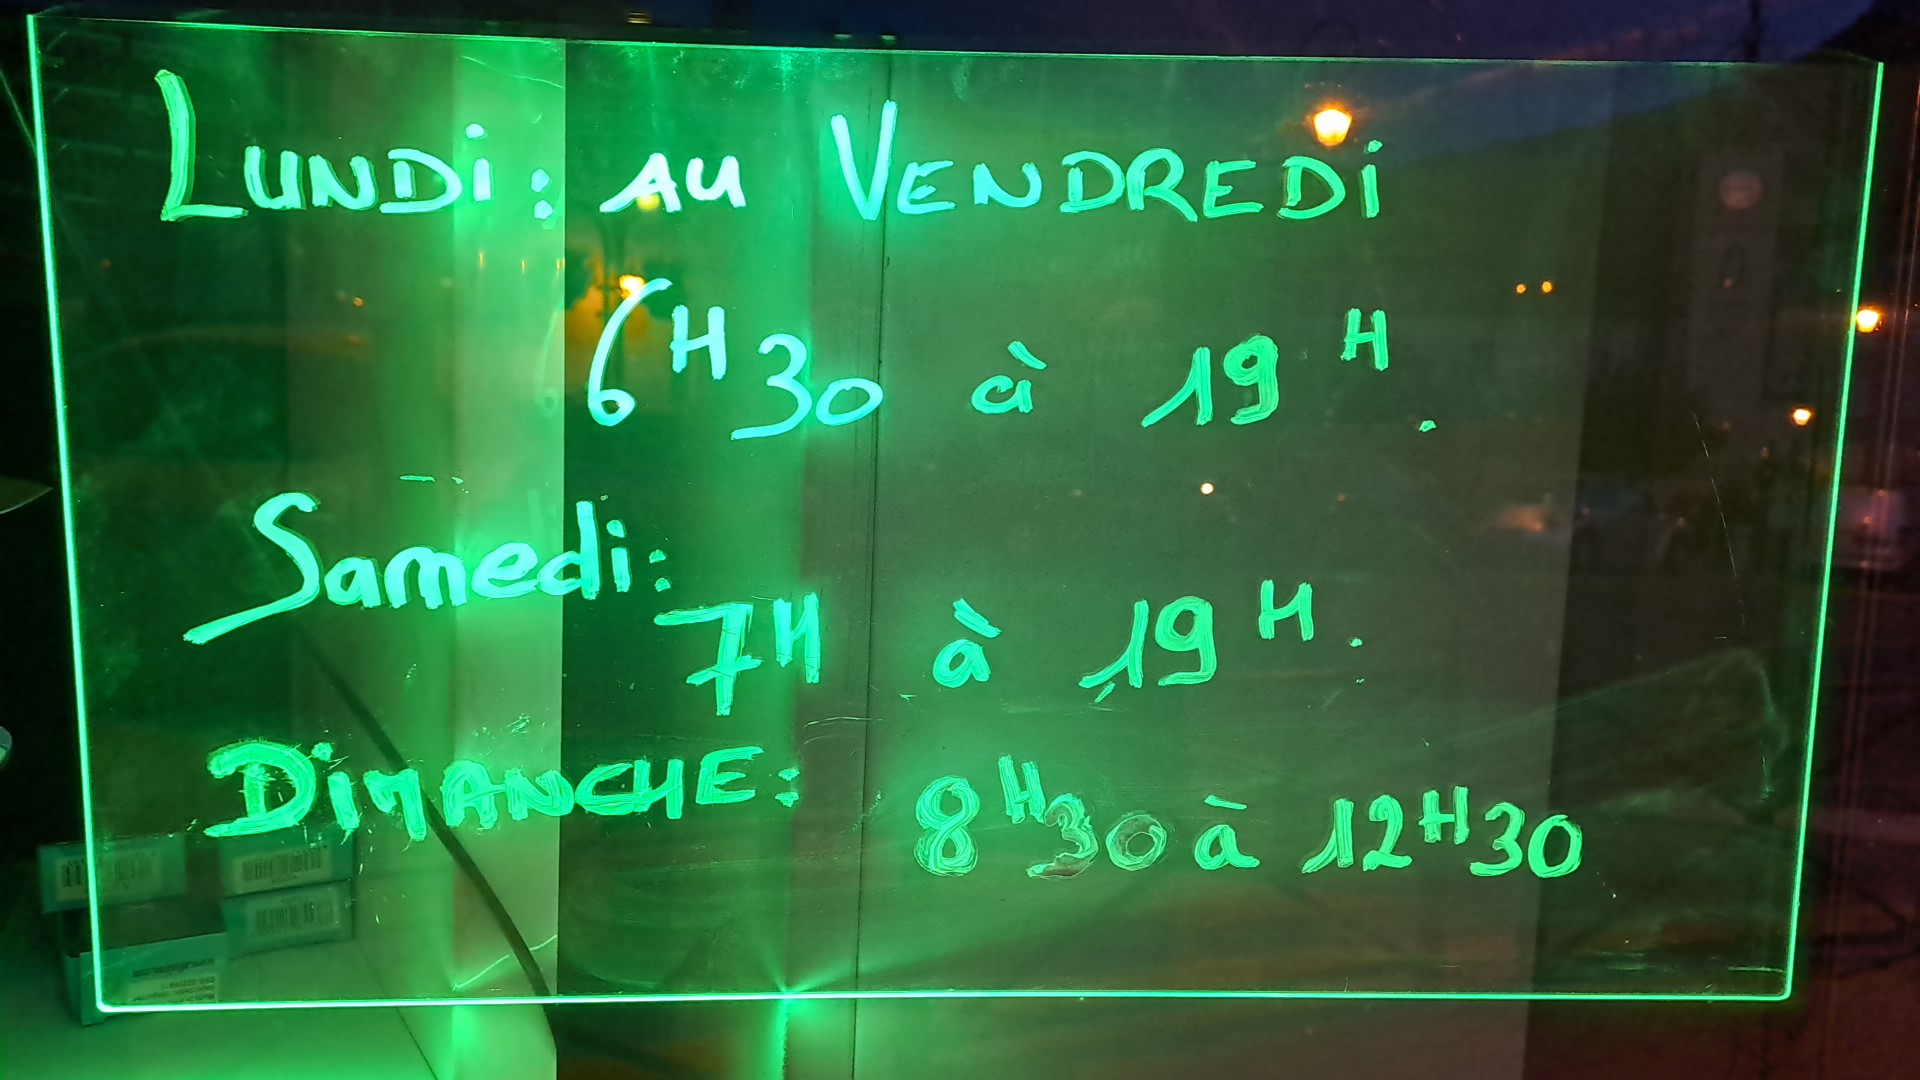 LUNDI : AU VENDREDI
6H30 à 19H.
Samedi :
7H à 19H.
DIMANCHE : 8H30 à 12H30